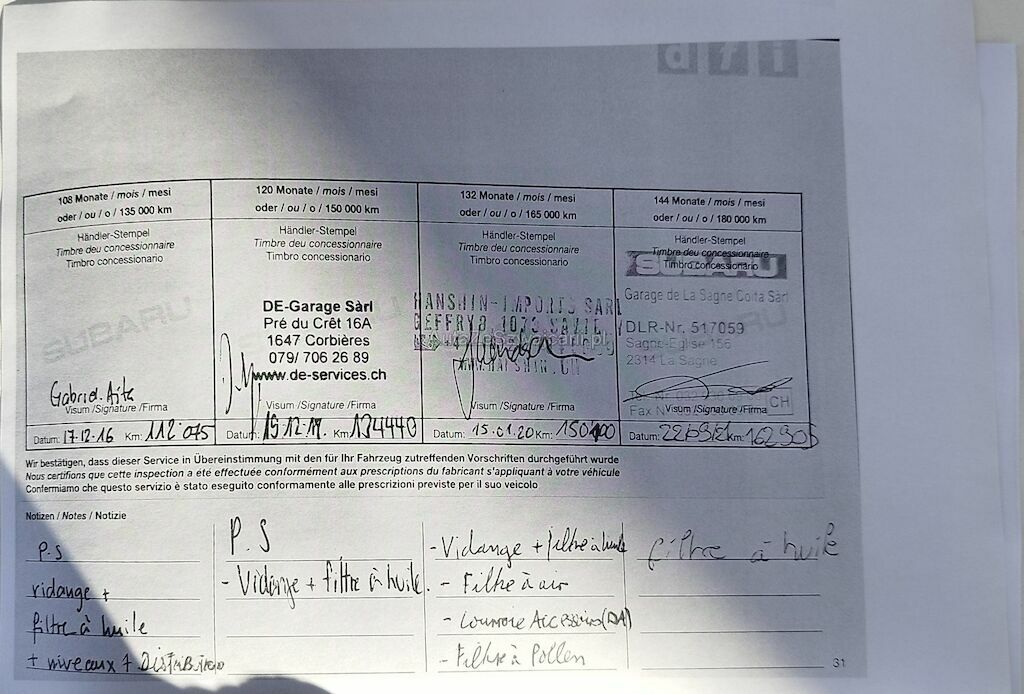 dfi
108 Monate / mois / mesi
oder / ou / o / 135 000 km
Händler-Stempel
Timbre deu concessionnaire
Timbro concessionario
SUBARU
Gabriel. Aita
Visum /Signature /Firma
Datum: 17.12.16 Km: 112 075
120 Monate / mois / mesi
oder / ou / o / 150 000 km
Händler-Stempel
Timbre deu concessionnaire
Timbro concessionario
DE-Garage Sàrl
Pré du Crêt 16A
1647 Corbières
079/ 706 26 89
www.de-services.ch
Visum /Signature /Firma
Datum: Km: 134440
132 Monate / mois / mesi
oder / ou / o / 165 000 km
Händler-Stempel
Timbre deu concessionnaire
Timbro concessionario
HANSHIN-IMPORTS SARL
GEFFRY 1073
WWW.HANSHIN.CH
Visum /Signature /Firma
Datum: 15.01.20 Km:
144 Monate / mois / mesi
oder / ou / o / 180 000 km
Händler-Stempel
Timbre deu concessionnaire
Timbro concessionario
SUBARU
Garage de La Sagne Coita Sàrl
DLR-Nr. 517059
Sagne-Eglise 156
2314 La Sagne
Fax CH
Visum /Signature /Firma
Datum: Km:
Wir bestätigen, dass dieser Service in Übereinstimmung mit den für Ihr Fahrzeug zutreffenden Vorschriften durchgeführt wurde
Nous certifions que cette inspection a été effectuée conformément aux prescriptions du fabricant s'appliquant à votre véhicule
Confermiamo che questo servizio è stato eseguito conformamente alle prescrizioni previste per il suo veicolo
Notizen / Notes / Notizie
P.S
vidange +
filtre à huile
+ niveaux +
P.S
- Vidange + filtre à huile.
- Vidange + filtre à huile
- Filtre à air
- Courroie Accessoires (DA)
- Filtre à Pollen
filtre à huile
31